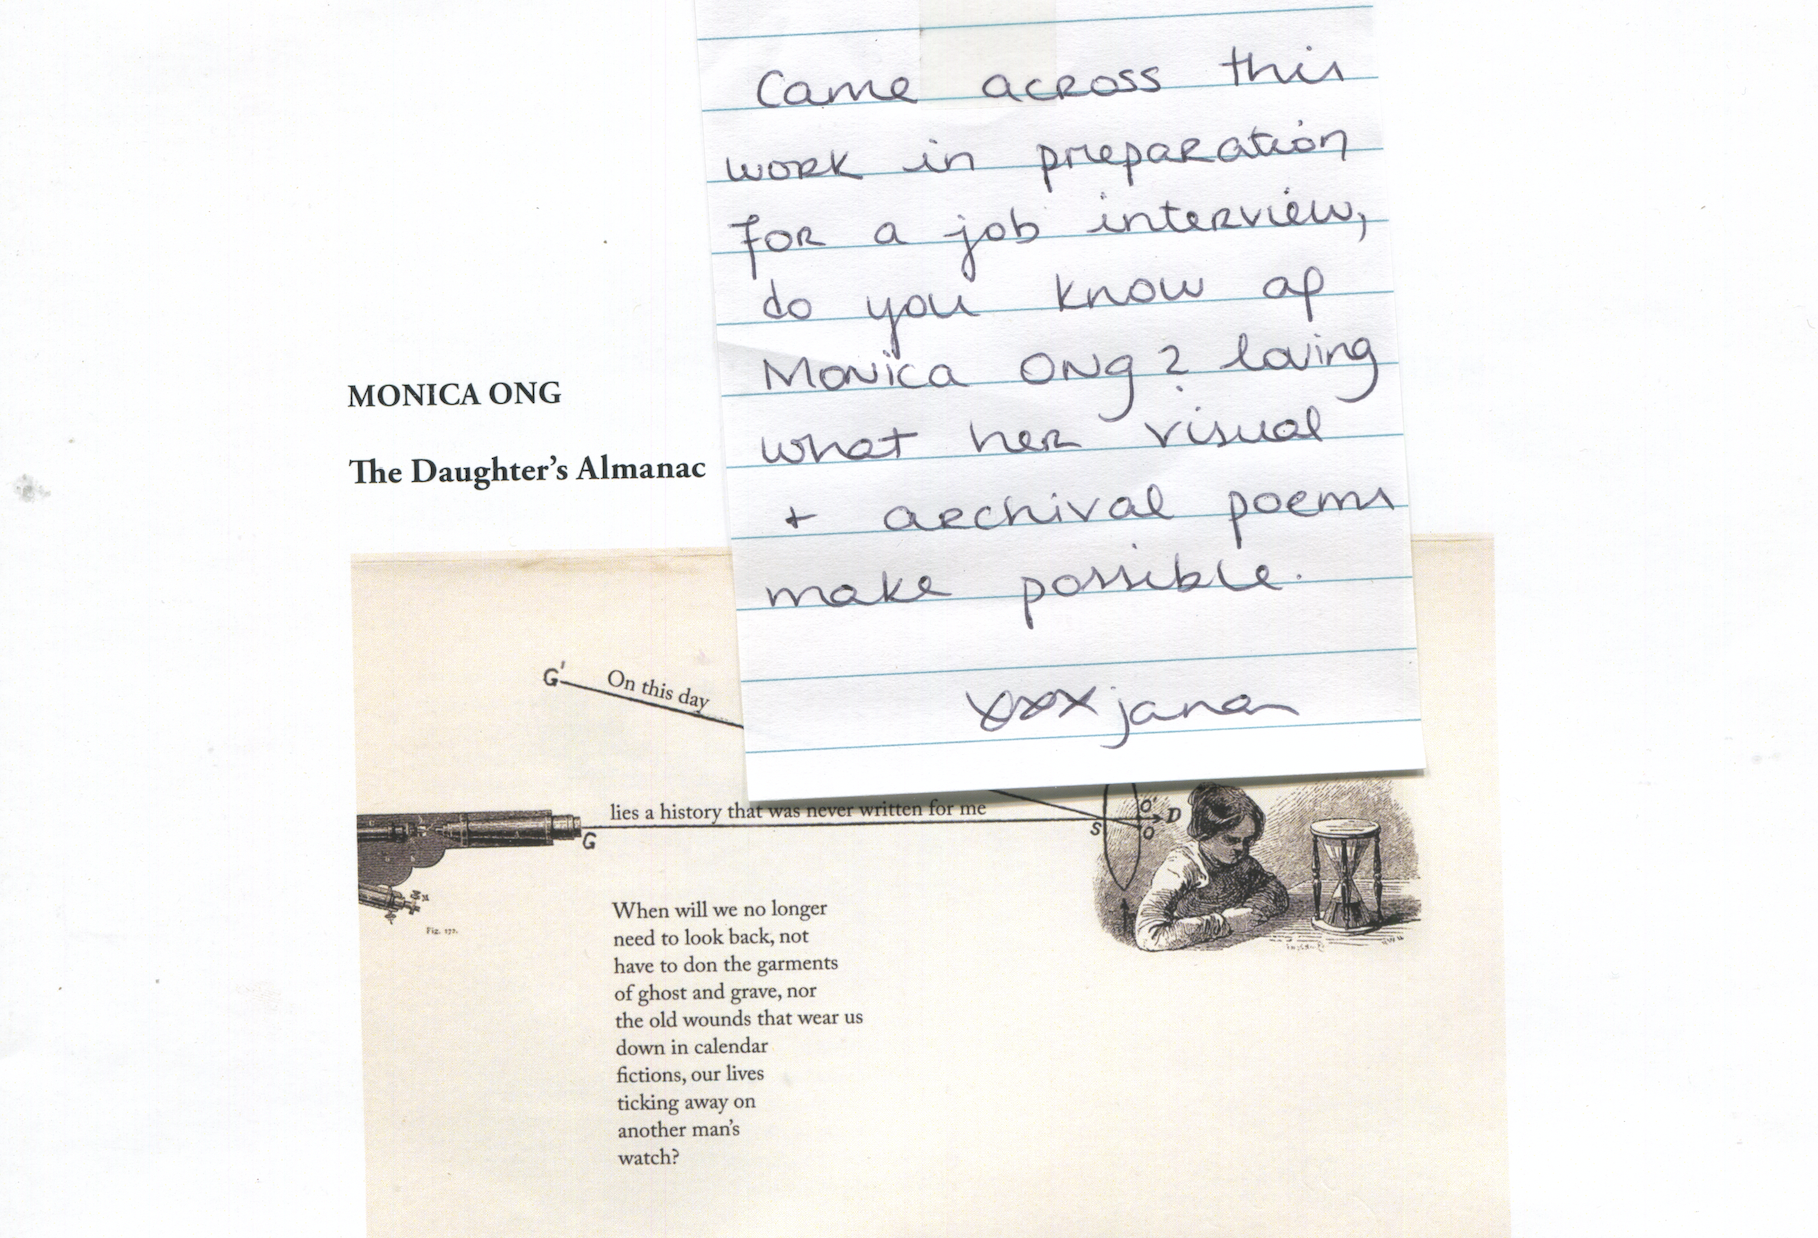 Came across this
work in preparation
for a job interview,
do you know of
Monica Ong? loving
what her visual
+ archival poems
make possible.
xxx jana
MONICA ONG
The Daughter's Almanac
G' On this day
lies a history that was never written for me
G
S O' D
O
Fig. 172.
When will we no longer
need to look back, not
have to don the garments
of ghost and grave, nor
the old wounds that wear us
down in calendar
fictions, our lives
ticking away on
another man's
watch?